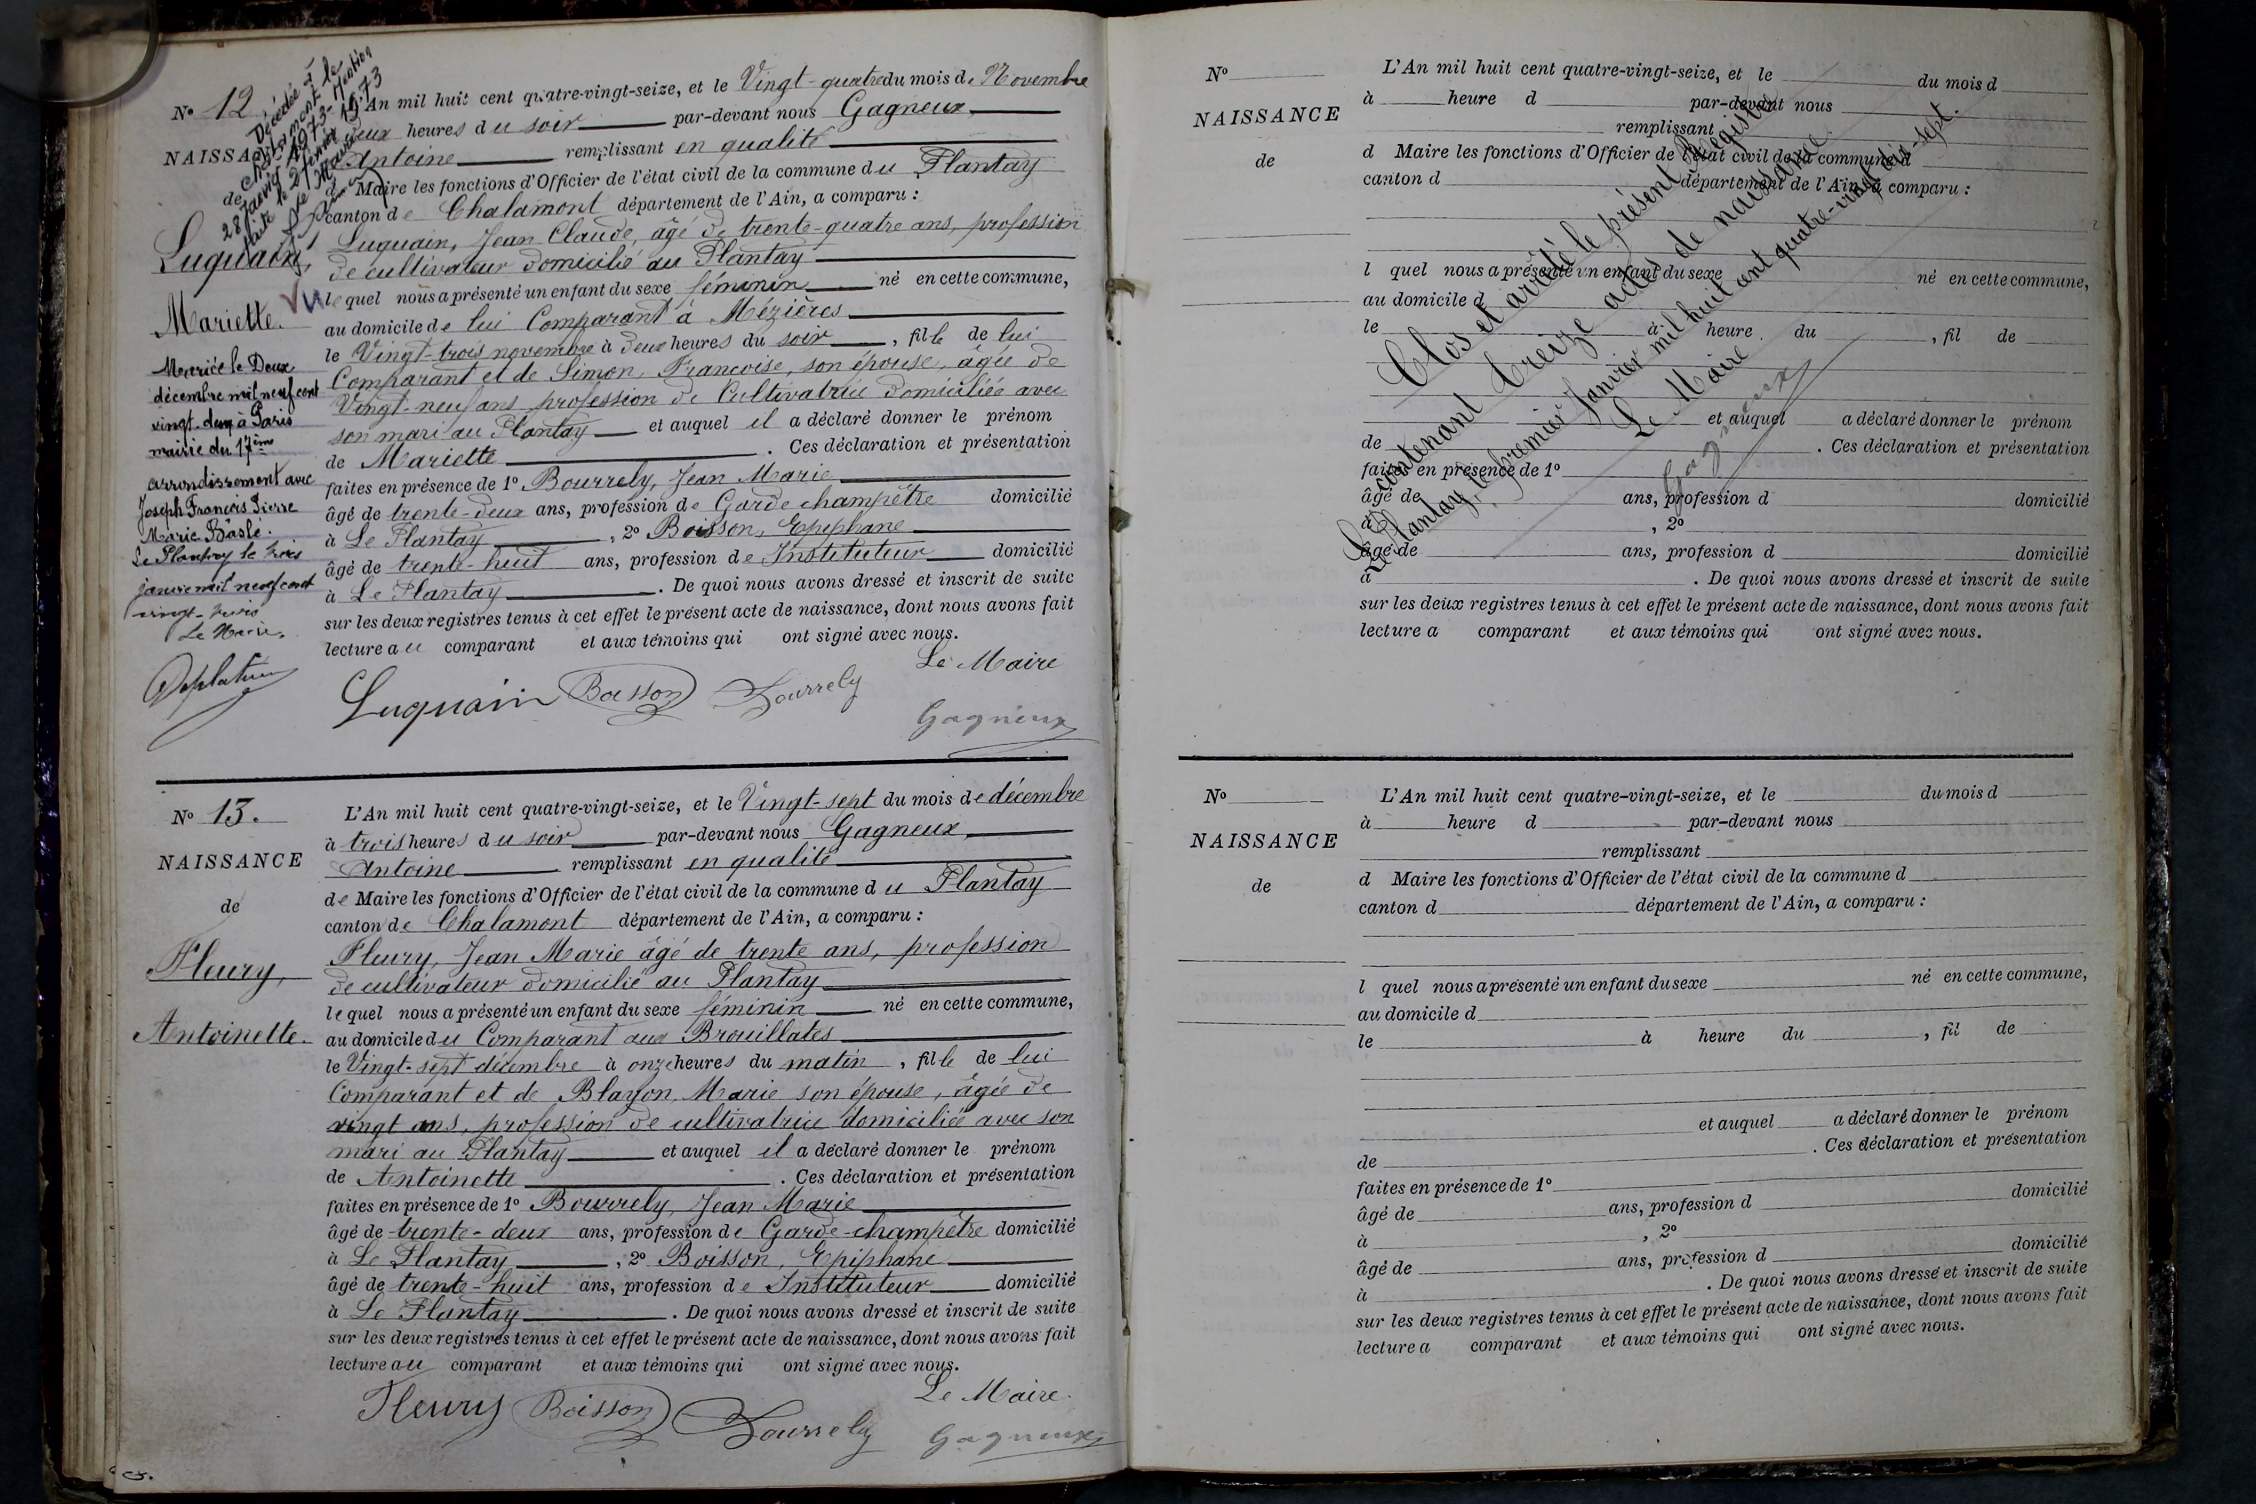 Décédée à
Chalamont le
28 janvier 1973 - Mention
faite le 2 février 1973
Le Maire
No 12
NAISSANCE
de
Luquain,
Mariette.
Vu
Mariée le Deux
décembre mil neuf cent
vingt-deux à Paris
mairie du 17ème
arrondissement avec
Joseph Francois Pierre
Marie Bâslé.
Le Plantay le trois
janvier mil neuf cent
vingt-trois
Le Maire,
L'An mil huit cent quatre-vingt-seize, et le Vingt-quatre du mois de Novembre
à deux heures du soir par-devant nous Gagneux
Antoine remplissant en qualité
de Maire les fonctions d'Officier de l'état civil de la commune du Plantay
canton de Chalamont département de l'Ain, a comparu :
Luquain, Jean Claude, âgé de trente-quatre ans, profession
de cultivateur domicilié au Plantay
lequel nous a présenté un enfant du sexe féminin né en cette commune,
au domicile de lui Comparant à Mézières
le Vingt-trois novembre à deux heures du soir, fille de lui
Comparant et de Simon, Francoise, son épouse, âgée de
Vingt-neuf ans profession de Cultivatrice domiciliée avec
son mari au Plantay et auquel il a déclaré donner le prénom
de Mariette. Ces déclaration et présentation
faites en présence de 1o Bourrely, Jean Marie
âgé de trente-deux ans, profession de Garde champêtre domicilié
à Le Plantay, 2o Boisson, Epiphane
âgé de trente-huit ans, profession de Instituteur domicilié
à Le Plantay. De quoi nous avons dressé et inscrit de suite
sur les deux registres tenus à cet effet le présent acte de naissance, dont nous avons fait
lecture au comparant et aux témoins qui ont signé avec nous.
Le Maire
Luquain Boisson Bourrely
Gagneux
No 13.
NAISSANCE
de
Fleury,
Antoinette.
L'An mil huit cent quatre-vingt-seize, et le Vingt-sept du mois de décembre
à trois heures du soir par-devant nous Gagneux,
Antoine remplissant en qualité
de Maire les fonctions d'Officier de l'état civil de la commune du Plantay
canton de Chalamont département de l'Ain, a comparu :
Fleury, Jean Marie âgé de trente ans, profession
de cultivateur domicilié au Plantay
lequel nous a présenté un enfant du sexe féminin né en cette commune,
au domicile du Comparant aux Brouillates
le Vingt-sept décembre à onze heures du matin, fille de lui
Comparant et de Blayon, Marie son épouse, âgée de
vingt ans, profession de cultivatrice domiciliée avec son
mari au Plantay et auquel il a déclaré donner le prénom
de Antoinette. Ces déclaration et présentation
faites en présence de 1o Bourrely, Jean Marie
âgé de trente-deux ans, profession de Garde-champêtre domicilié
à Le Plantay, 2o Boisson, Epiphane
âgé de trente-huit ans, profession de Instituteur domicilié
à Le Plantay. De quoi nous avons dressé et inscrit de suite
sur les deux registres tenus à cet effet le présent acte de naissance, dont nous avons fait
lecture au comparant et aux témoins qui ont signé avec nous.
Le Maire.
Fleury Boisson Bourrely Gagneux
No
NAISSANCE
de
L'An mil huit cent quatre-vingt-seize, et le du mois d
à heure d par-devant nous
remplissant
d Maire les fonctions d'Officier de l'état civil de la commune d
canton d département de l'Ain, a comparu :
l quel nous a présenté un enfant du sexe né en cette commune,
au domicile d
le à heure du , fil de
et auquel a déclaré donner le prénom
de . Ces déclaration et présentation
faites en présence de 1o
âgé de ans, profession d domicilié
à , 2o
âgé de ans, profession d domicilié
à . De quoi nous avons dressé et inscrit de suite
sur les deux registres tenus à cet effet le présent acte de naissance, dont nous avons fait
lecture a comparant et aux témoins qui ont signé avec nous.
Clos et arrêté le présent Registre
contenant treize actes de naissance.
Le Plantay, le premier Janvier mil huit cent quatre-vingt dix-sept.
Le Maire
Gagneux
No
NAISSANCE
de
L'An mil huit cent quatre-vingt-seize, et le du mois d
à heure d par-devant nous
remplissant
d Maire les fonctions d'Officier de l'état civil de la commune d
canton d département de l'Ain, a comparu :
l quel nous a présenté un enfant du sexe né en cette commune,
au domicile d
le à heure du , fil de
et auquel a déclaré donner le prénom
de . Ces déclaration et présentation
faites en présence de 1o
âgé de ans, profession d domicilié
à , 2o
âgé de ans, profession d domicilié
à . De quoi nous avons dressé et inscrit de suite
sur les deux registres tenus à cet effet le présent acte de naissance, dont nous avons fait
lecture a comparant et aux témoins qui ont signé avec nous.